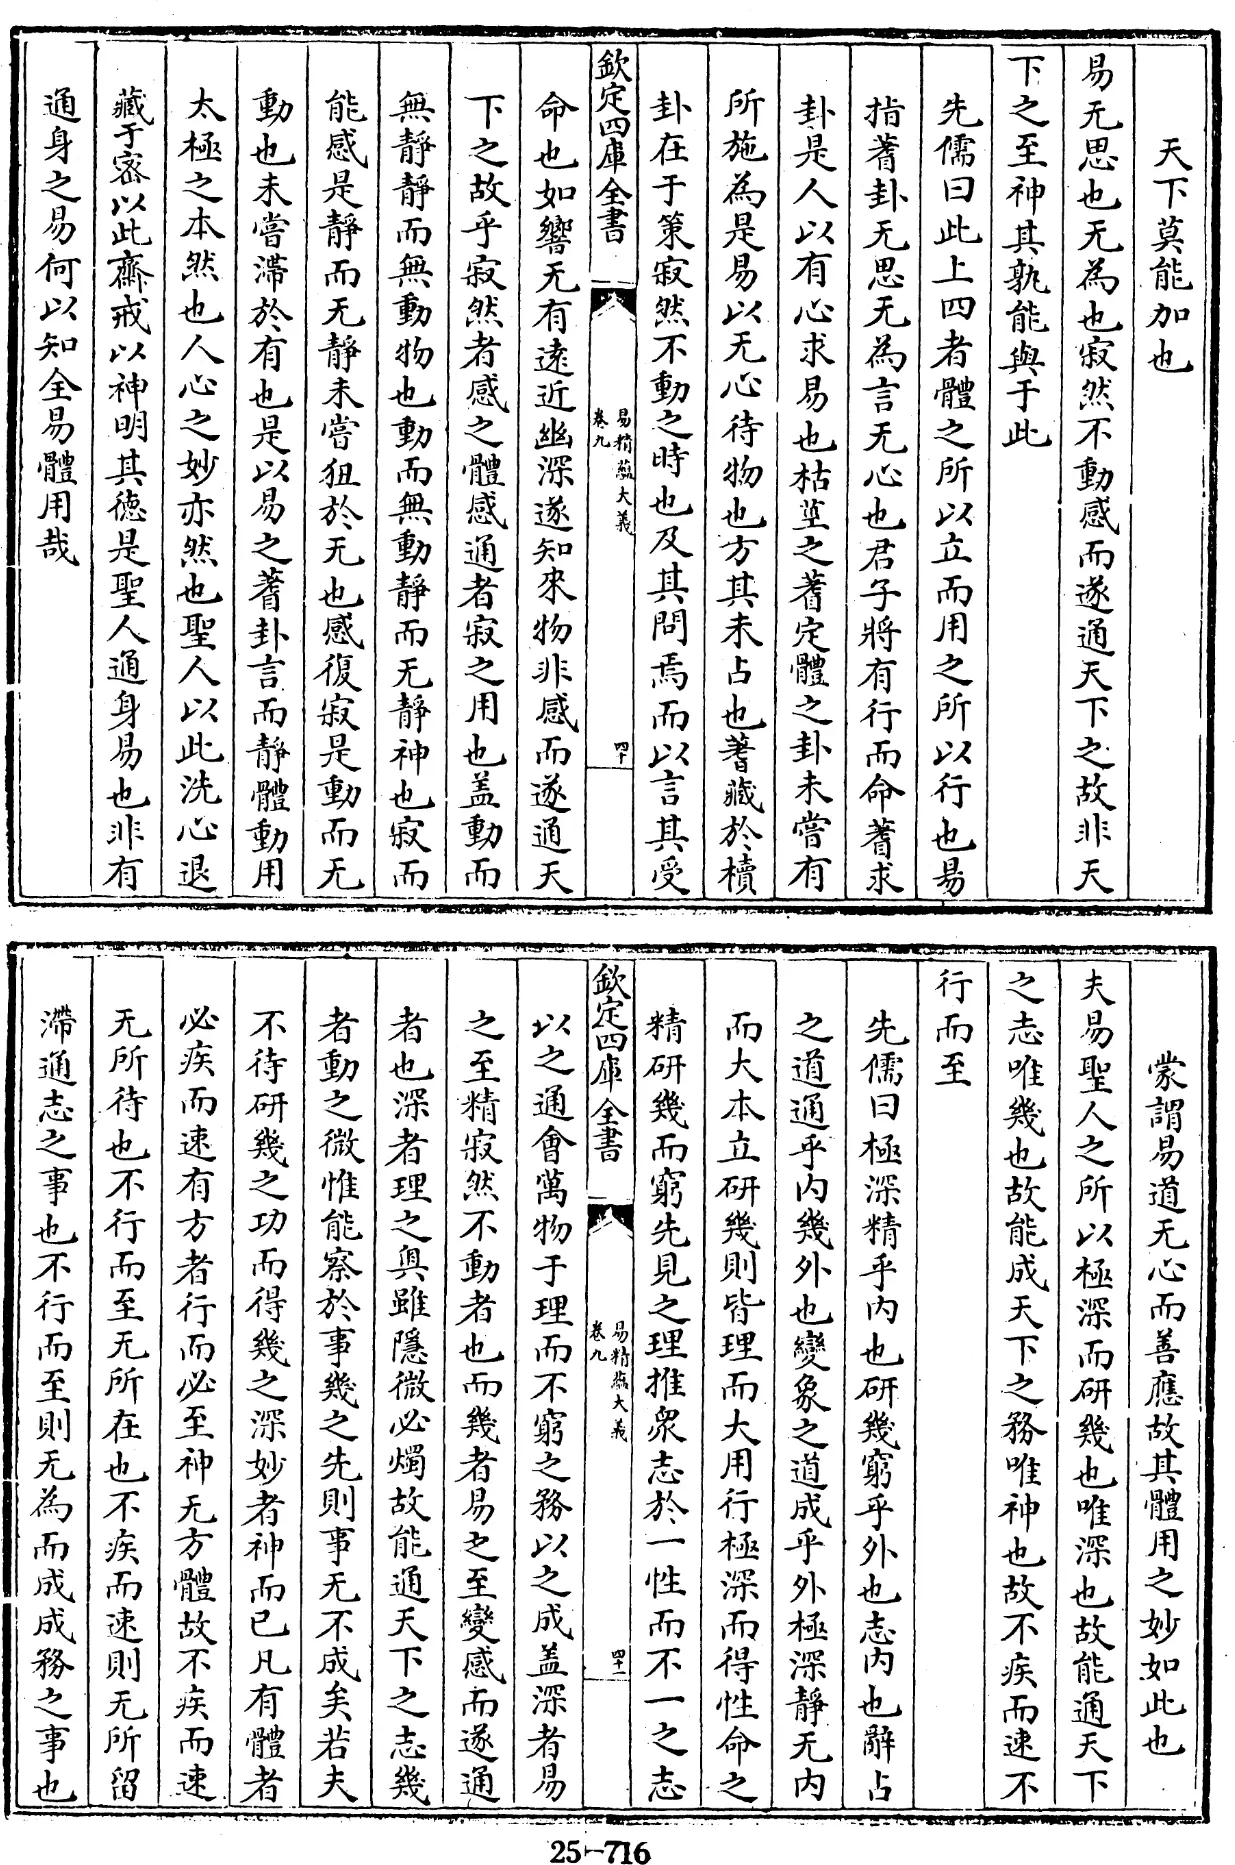 天下莫能加也
易无思也无為也寂然不動感而遂通天下之故非天
下之至神其孰能與于此
先儒曰此上四者體之所以立而用之所以行也易
指蓍卦无思无為言无心也君子將有行而命蓍求
卦是人以有心求易也枯莖之蓍定體之卦未嘗有
所施為是易以无心待物也方其未占也蓍藏於櫝
卦在于策寂然不動之時也及其問焉而以言其受
欽定四庫全書
易精蘊大義
卷九
四十
命也如響无有遠近幽深遂知來物非感而遂通天
下之故乎寂然者感之體感通者寂之用也盖動而
無靜靜而無動物也動而無動靜而无靜神也寂而
能感是靜而无靜未嘗狃於无也感復寂是動而无
動也未嘗滯於有也是以易之蓍卦言而靜體動用
太極之本然也人心之妙亦然也聖人以此洗心退
藏于密以此齋戒以神明其德是聖人通身易也非有
通身之易何以知全易體用哉
蒙謂易道无心而善應故其體用之妙如此也
夫易聖人之所以極深而研幾也唯深也故能通天下
之志唯幾也故能成天下之務唯神也故不疾而速不
行而至
先儒曰極深精乎内也研幾窮乎外也志内也辭占
之道通乎内幾外也變象之道成乎外極深靜无内
而大本立研幾則皆理而大用行極深而得性命之
精研幾而窮先見之理推衆志於一性而不一之志
欽定四庫全書
易精蘊大義
卷九
四十一
以之通會萬物于理而不窮之務以之成盖深者易
之至精寂然不動者也而幾者易之至變感而遂通
者也深者理之奥雖隱微必燭故能通天下之志幾
者動之微惟能察於事幾之先則事无不成矣若夫
不待研幾之功而得幾之深妙者神而已凡有體者
必疾而速有方者行而必至神无方體故不疾而速
无所待也不行而至无所在也不疾而速則无所留
滯通志之事也不行而至則无為而成成務之事也
25-716